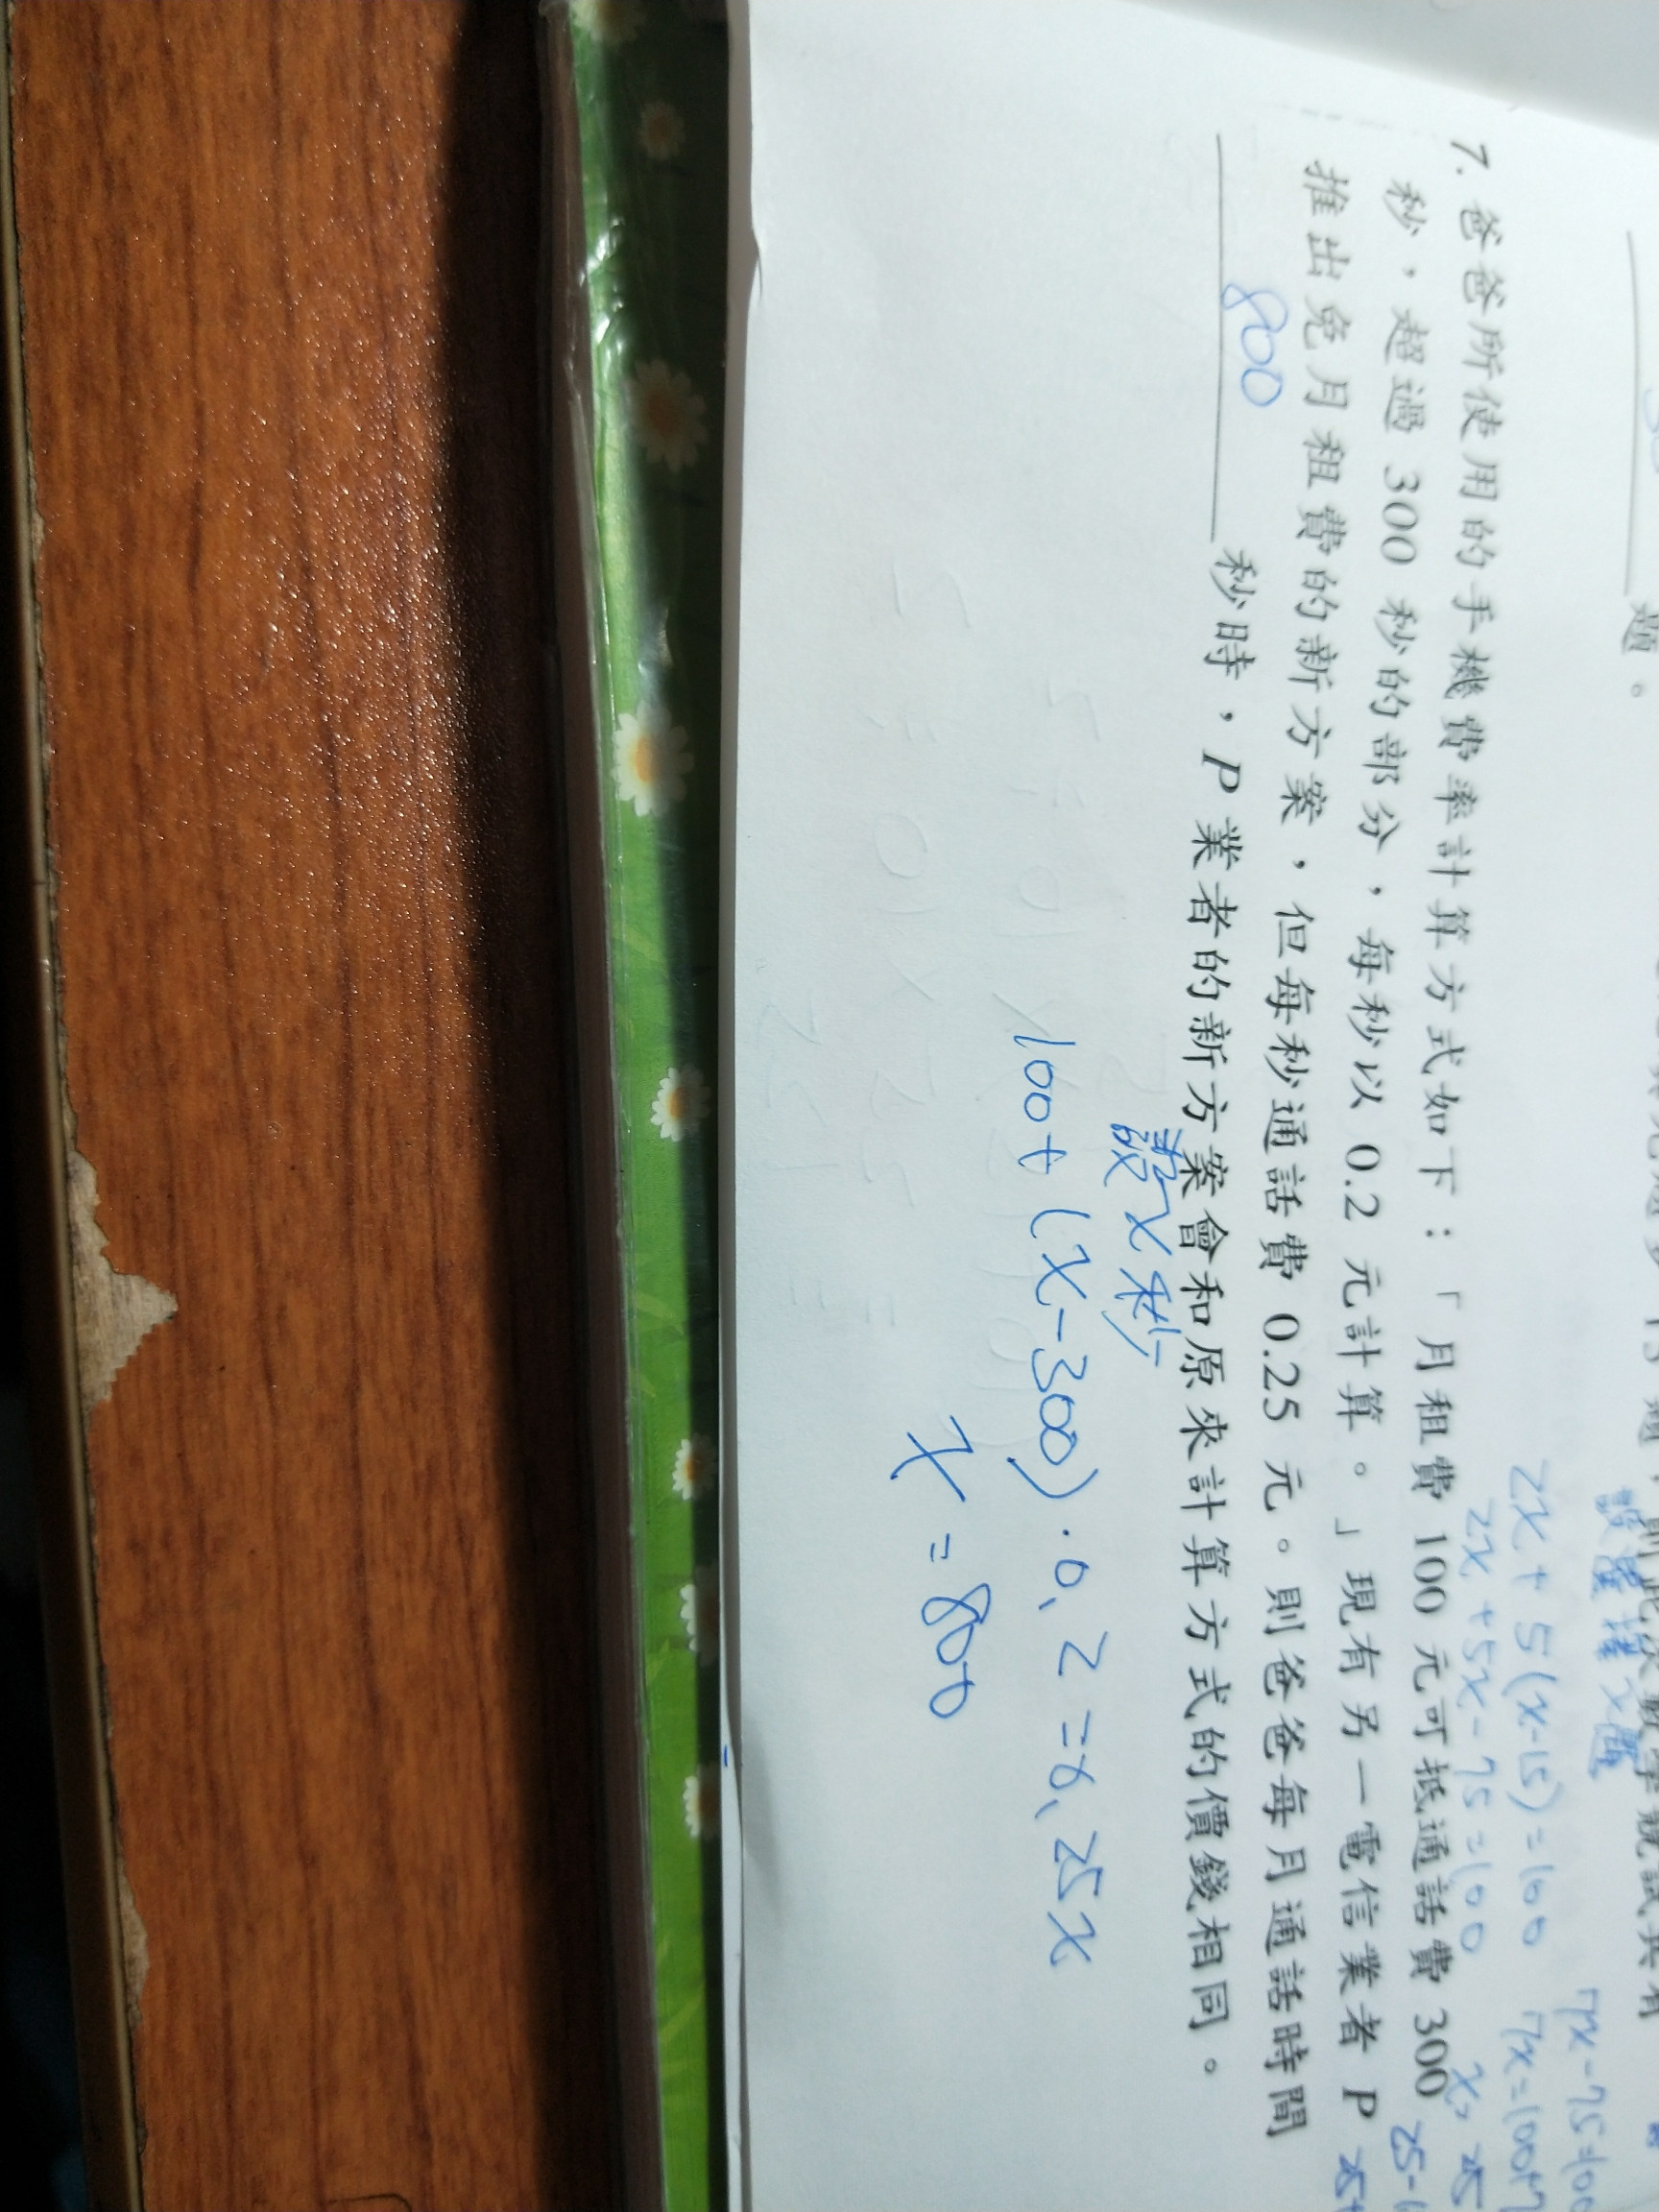 題。
2x+5(x-15)=100
2x+5x-75=100
7x-75=100
7. 爸爸所使用的手機費率計算方式如下:「月租費 100 元可抵通話費 300
秒,超過 300 秒的部分,每秒以 0.2 元計算。」現有另一電信業者 P
推出免月租費的新方案,但每秒通話費 0.25 元。則爸爸每月通話時間
800 秒時,P 業者的新方案會和原來計算方式的價錢相同。
設x秒
100+(x-300)·0.2=0.25x
x=800